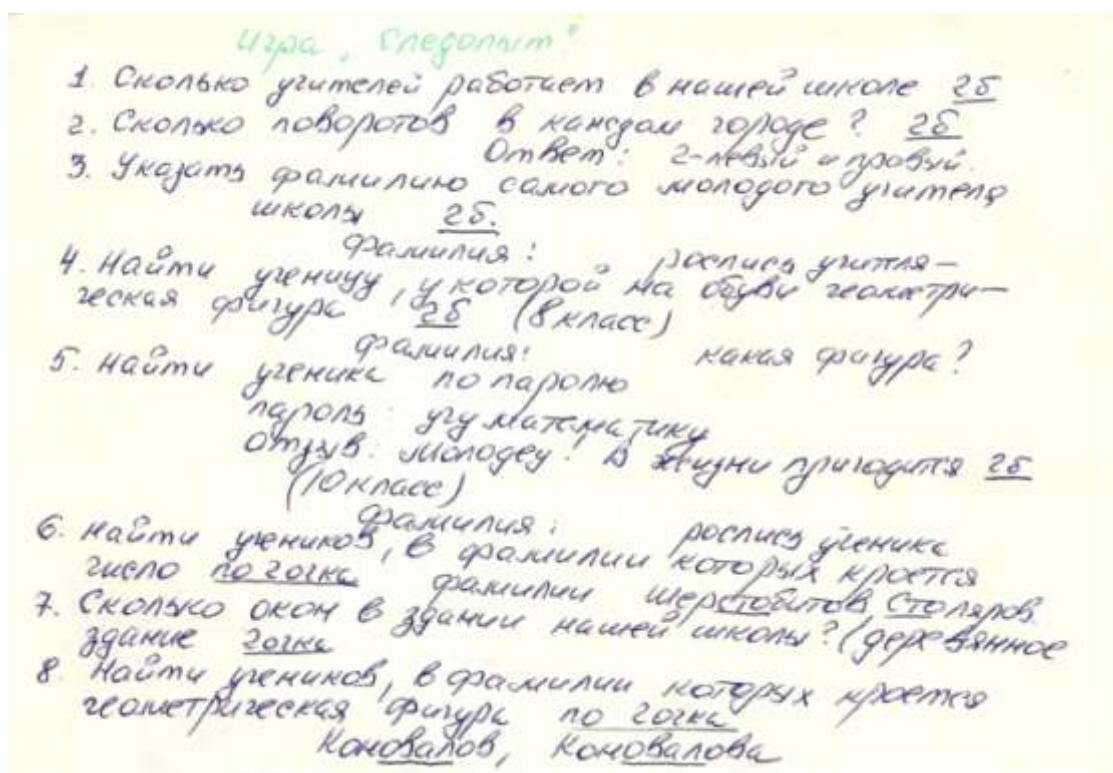 Игра „Следопыт"
1. Сколько учителей работает в нашей школе 2б
2. Сколько поворотов в каждом городе? 2б
Ответ: 2-левый и правый.
3. Указать фамилию самого молодого учителя
школы 2б.
фамилия: роспись учителя-
4. Найти ученицу, у которой на обуви геометри-
ческая фигура 2б (8 класс)
фамилия: какая фигура?
5. Найти ученика по паролю
пароль: учу математику
отзыв: молодец! В жизни пригодится 2б
(10 класс)
фамилия: роспись ученика
6. Найти учеников, в фамилии которых кроется
число по 2очка фамилии Шерстобитов Столяров
7. Сколько окон в здании нашей школы? (деревянное
здание 2очка
8. Найти учеников, в фамилии которых кроется
геометрическая фигура по 2очка
Коновалов, Коновалова